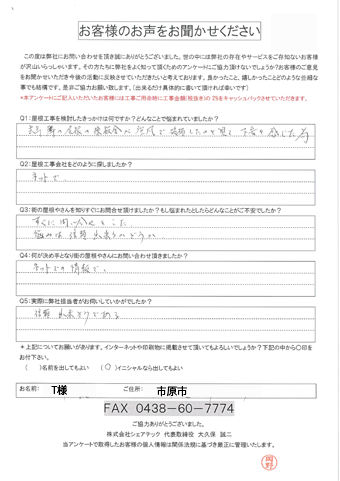 お客様のお声をお聞かせください
この度は弊社にお問い合わせを頂き誠にありがとうございました。世の中には弊社の存在やサービスをご存知ないお客様
が沢山いらっしゃいます。その方たちに弊社をよく知って頂くためのアンケートにご協力頂けないでしょうか?お客様のご意見
をお聞かせいただき今後の活動に反映させていただきたいと考えております。良かったこと、嬉しかったことどのような些細な
事でも結構です。是非ご協力お願い致します。(出来るだけ具体的に書いて頂ければ幸いです)
*本アンケートにご記入いただいたお客様には工事ご用命時に工事金額(税抜き)の2%をキャッシュバックさせていただきます。
Q1:屋根工事を検討したきっかけは何ですか?どんなことで悩まれていましたか?
Q2:屋根工事会社をどのように探しましたか?
ネットで、
Q3:街の屋根やさんを知りすぐにお問合せ頂けましたか?もし悩まれたとしたらどんなことがご不安でしたか?
すぐに問い合せをした
悩みは信頼出来るかどうか
Q4:何が決め手となり街の屋根やさんにお問い合わせ頂きましたか?
ネットでの情報で、
Q5:実際に弊社担当者がお伺いしていかがでしたか?
信頼出来そうである
*上記についてお願いがあります。インターネットや印刷物に掲載させて頂いてもよろしいでしょうか?下記の中から〇印を
お付け下さい。
( )名前を出してもよい (〇)イニシャルなら出してもよい
お名前: T様 ご住所: 市原市
FAX 0438-60-7774
ご協力ありがとうございました。
株式会社シェアテック 代表取締役 大久保 誠二
当アンケートで取得したお客様の個人情報は関係法規に基づき厳正に管理いたします。
岡野